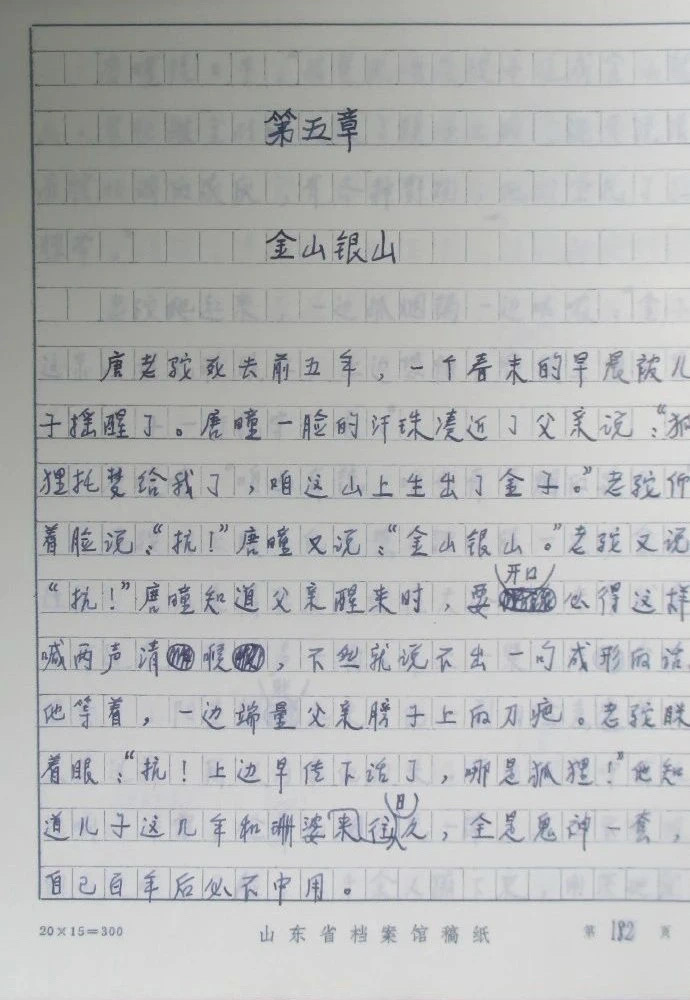 第五章
金山银山
唐老驼死去前五年，一个春末的早晨被儿
子摇醒了。唐瞳一脸的汗珠凑近了父亲说：“狐
狸托梦给我了，咱这山上生出了金子。”老驼仰
着脸说：“抗！”唐瞳又说：“金山银山。”老驼又说
开口
“抗！”唐瞳知道父亲醒来时，要必得这样
喊两声清喉，不然就说不出一句成形的话。
他等着，一边端量父亲膀子上的刀疤。老驼眯
着眼：“抗！上边早传下话了，哪是狐狸！”他知
日
道儿子这几年和珊婆来往久，全是鬼神一套，
自己百年后必不中用。
20×15=300
山东省档案馆稿纸
第 182 页